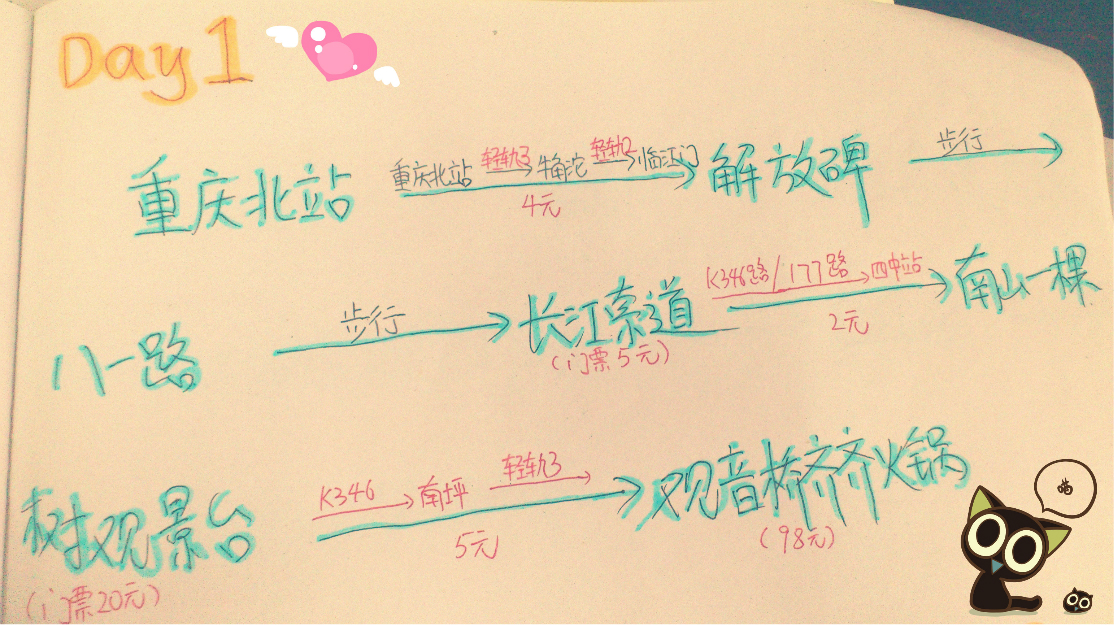 Day 1
重庆北站 重庆北站 轻轨3 牛角沱 轻轨2 临江门 解放碑 步行
4元
八一路 步行 长江索道 K346路/177路 四中站 南山一棵
(门票5元) 2元
树观景台 K346 南坪 轻轨3 观音桥齐齐火锅
(门票20元) 5元 (98元)
喵